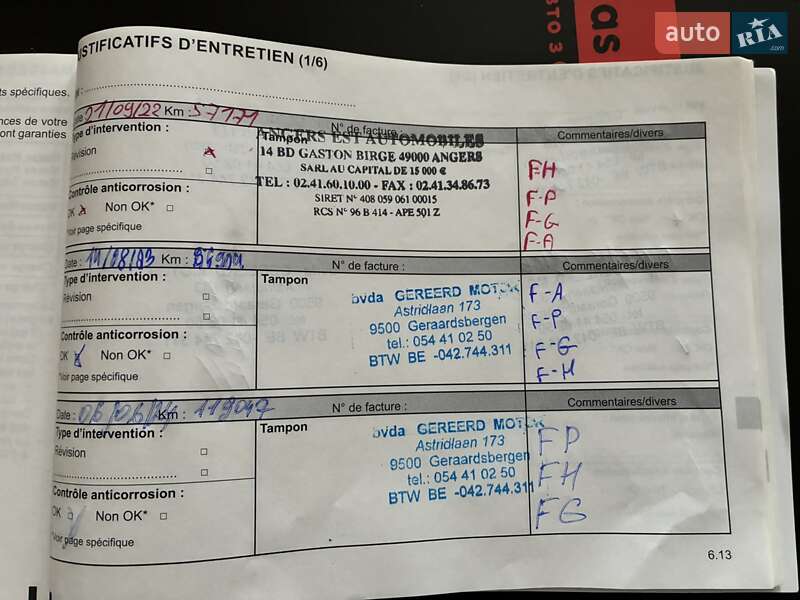 auto RIA.com
as
USTIFICATIFS D'ENTRETIEN (1/6)
ts spécifiques.
nces de votre
ont garanties
21/09/22 Km : 57171
N° de facture :
Commentaires/divers
Type d'intervention :
Révision
Tampon
ANGERS EST AUTOMOBILES
14 BD GASTON BIRGE 49000 ANGERS
SARL AU CAPITAL DE 15 000 €
TEL : 02.41.60.10.00 - FAX : 02.41.34.86.73
SIRET N° 408 059 061 00015
RCS N° 96 B 414 - APE 501 Z
FH
F-P
F-G
F-A
Contrôle anticorrosion :
OK Non OK*
*Voir page spécifique
Date : Km :
N° de facture :
Commentaires/divers
Type d'intervention :
Révision
Tampon
bvda GEREERD MOTOR
Astridlaan 173
9500 Geraardsbergen
tel.: 054 41 02 50
BTW BE -042.744.311
F-A
F-P
F-G
F-H
Contrôle anticorrosion :
OK Non OK*
*Voir page spécifique
Date : 06/06/24 Km : 119047
N° de facture :
Commentaires/divers
Type d'intervention :
Révision
Tampon
bvda GEREERD MOTOR
Astridlaan 173
9500 Geraardsbergen
tel.: 054 41 02 50
BTW BE -042.744.311
FP
FH
FG
Contrôle anticorrosion :
OK Non OK*
*Voir page spécifique
6.13